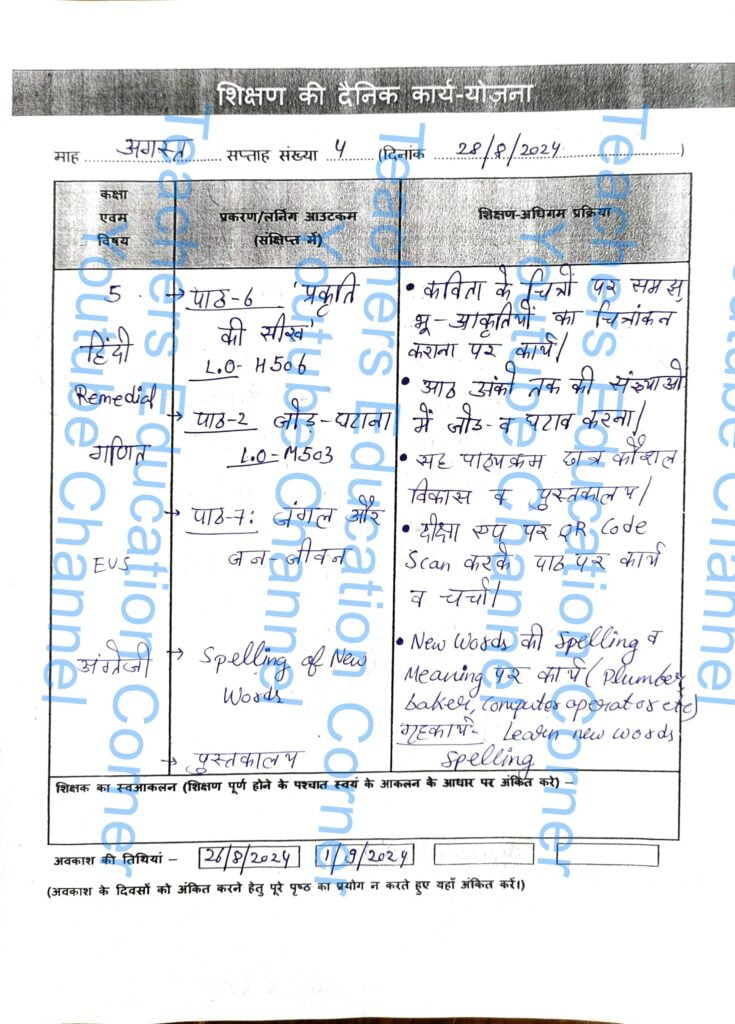 शिक्षण की दैनिक कार्य-योजना
माह अगस्त सप्ताह संख्या 4 (दिनांक 28/8/2024)
कक्षा एवम विषय
प्रकरण/लर्निंग आउटकम (संक्षिप्त में)
शिक्षण-अधिगम प्रक्रिया
5
हिंदी
Remedial
गणित
EVS
अंग्रेजी
→ पाठ-6 'प्रकृति
की सीख'
L.O- H506
→ पाठ-2 जोड़-घटाना
L.O-M503
→ पाठ-7: जंगल और
जन-जीवन
→ Spelling of New
Words
→ पुस्तकालय
• कविता के चित्रों पर समझ
भू-आकृतियों का चित्रांकन
कराना पर कार्य।
• आठ अंको तक की संख्याओं
में जोड-व घटाव करना।
• सह पाठ्यक्रम छात्र कौशल
विकास व पुस्तकालय।
• दीक्षा एप पर QR Code
Scan करके पाठ पर कार्य
व चर्चा।
• New Words की Spelling व
Meaning पर कार्य (Plumber,
baker, Computer operator etc)
गृहकार्य- Learn new words
Spelling.
शिक्षक का स्वआकलन (शिक्षण पूर्ण होने के पश्चात स्वयं के आकलन के आधार पर अंकित करे) –
अवकाश की तिथियां – 26/8/2024 1/9/2024
(अवकाश के दिवसों को अंकित करने हेतु पूरे पृष्ठ का प्रयोग न करते हुए यहाँ अंकित करें।)
Teachers Education Corner
Youtube Channel
Teachers Education Corner
Youtube Channel
Teachers Education Corner
Youtube Channel